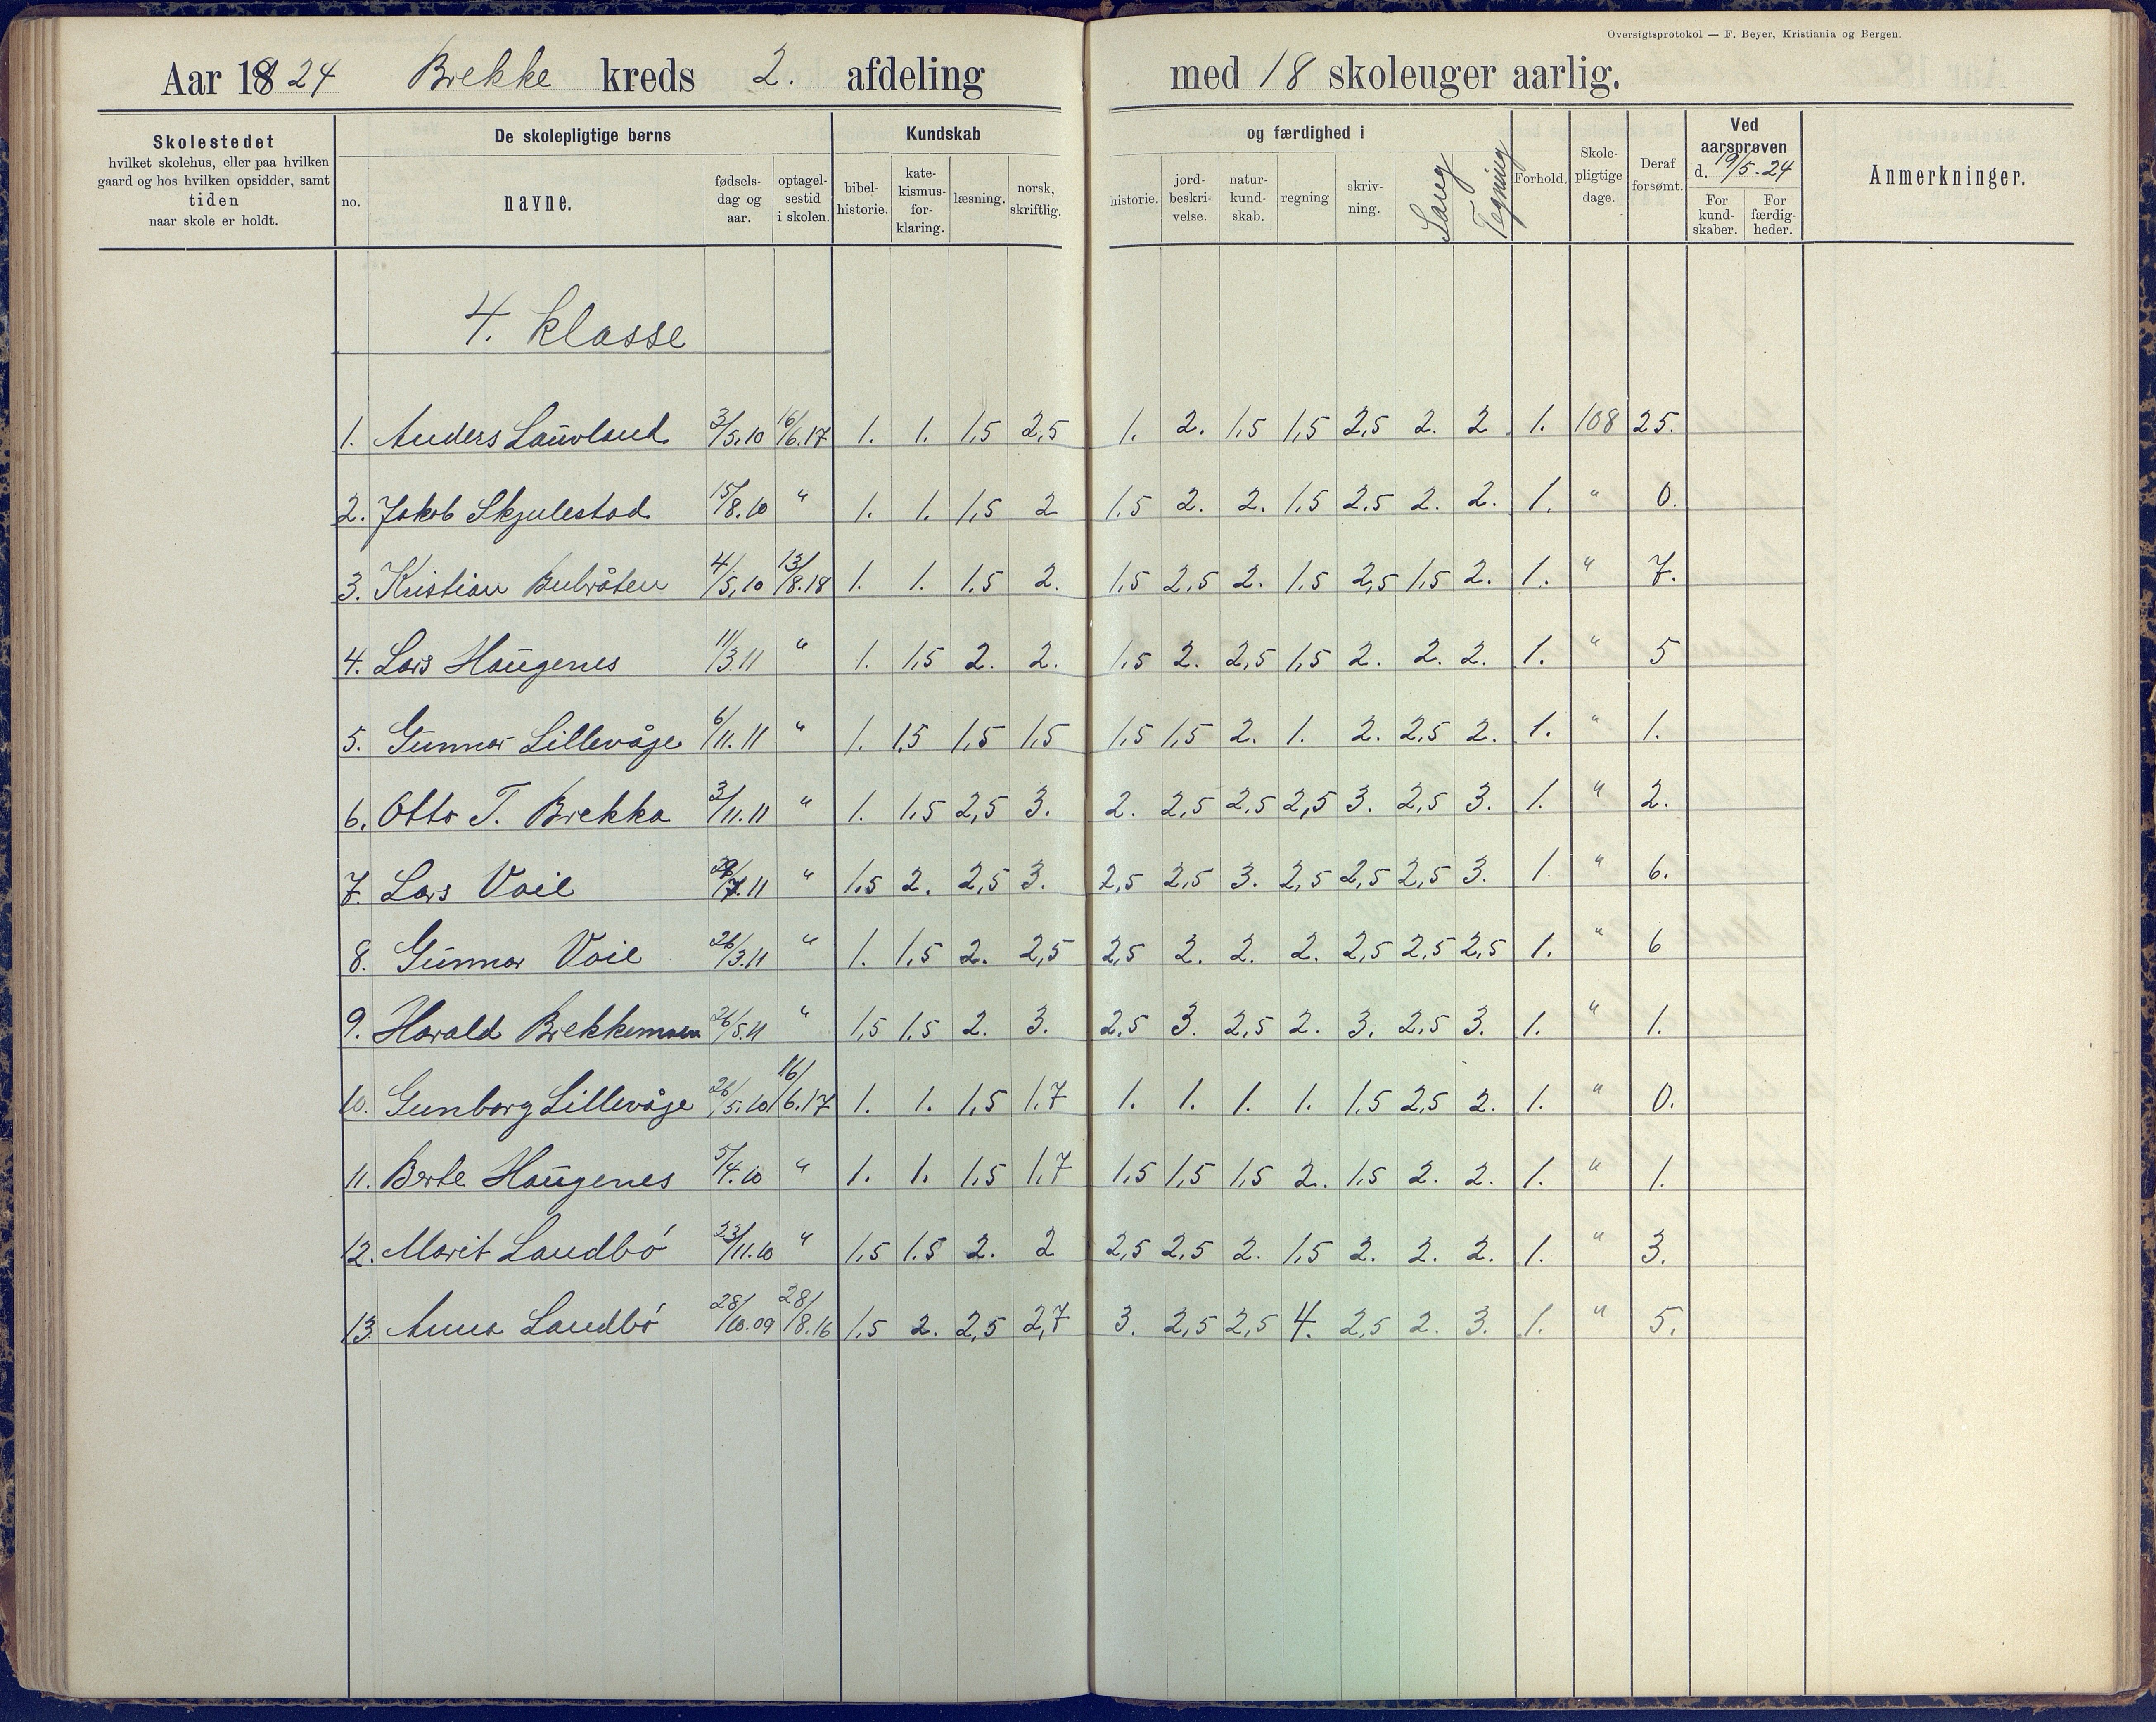 Oversigtsprotokol — F. Beyer, Kristiania og Bergen.
Aar 1924 Brekke kreds 2. afdeling med 18 skoleuger aarlig.
Skolestedet hvilket skolehus, eller paa hvilken gaard og hos hvilken opsidder, samt tiden naar skole er holdt.
De skolepligtige børns
no. navne. fødsels-dag og aar. optagel-sestid i skolen.
Kundskab og færdighed i
bibel-historie. kate-kismus-for-klaring. læsning. norsk, skriftlig. historie. jord-beskri-velse. natur-kund-skab. regning skriv-ning. Sang Tegning
Forhold. Skole-pligtige dage. Deraf forsømt.
Ved aarsprøven d. 19/5-24
For kund-skaber. For færdig-heder.
Anmerkninger.
4. klasse
1. Anders Lauvland 3/5.10 16/6.17 1. 1. 1,5 2,5 1. 2. 1,5 1,5 2,5 2. 2 1. 108 25.
2. Jakob Skjulestad 15/8.10 " 1. 1. 1,5 2 1,5 2. 2. 1,5 2,5 2. 2. 1. " 0.
3. Kristian Bulråten 4/5.10 13/8.18 1. 1. 1,5 2. 1,5 2,5 2. 1,5 2,5 1,5 2. 1. " 7.
4. Lars Haugenes 11/3.11 " 1. 1,5 2. 2. 1,5 2. 2,5 1,5 2. 2. 2. 1. " 5
5. Gunnar Lillevåje 6/11.11 " 1. 1,5 1,5 1,5 1,5 1,5 2. 1. 2. 2,5 2. 1. " 1.
6. Otto T. Brekka 3/11.11 " 1. 1,5 2,5 3. 2. 2,5 2,5 2,5 3. 2,5 3. 1. " 2.
7. Lars Vaie 7.11 " 1,5 2. 2,5 3. 2,5 2,5 3. 2,5 2,5 2,5 3. 1. " 6.
8. Gunnar Vaie 26/3.11 " 1. 1,5 2. 2,5 2,5 2. 2. 2. 2,5 2,5 2,5 1. " 6
9. Harald Brekkemoen 26/5.11 " 1,5 1,5 2. 3. 2,5 3. 2,5 2. 3. 2,5 3. 1. " 1.
10. Gunborg Lillevåje 26/5.10 16/6.17 1. 1. 1,5 1,7 1. 1. 1. 1. 1,5 2,5 2. 1. " 0.
11. Berte Haugenes 5/4.10 " 1. 1. 1,5 1,7 1,5 1,5 1,5 2. 1,5 2. 2. 1. " 1.
12. Marit Landbó 23/11.10 " 1,5 1,5 2. 2 2,5 2,5 2. 1,5 2. 2. 2. 1. " 3.
13. Anna Landbó 28/10.09 28/8.16 1,5 2. 2,5 2,7 3. 2,5 2,5 4. 2,5 2. 3. 1. " 5.